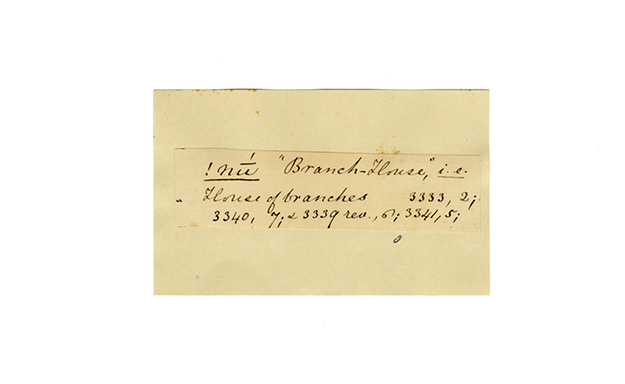 !nū́ "Branch-House," i.e.
House of branches 3333, 2;
3340, 7; & 3339 rev., 6; 3341, 5;